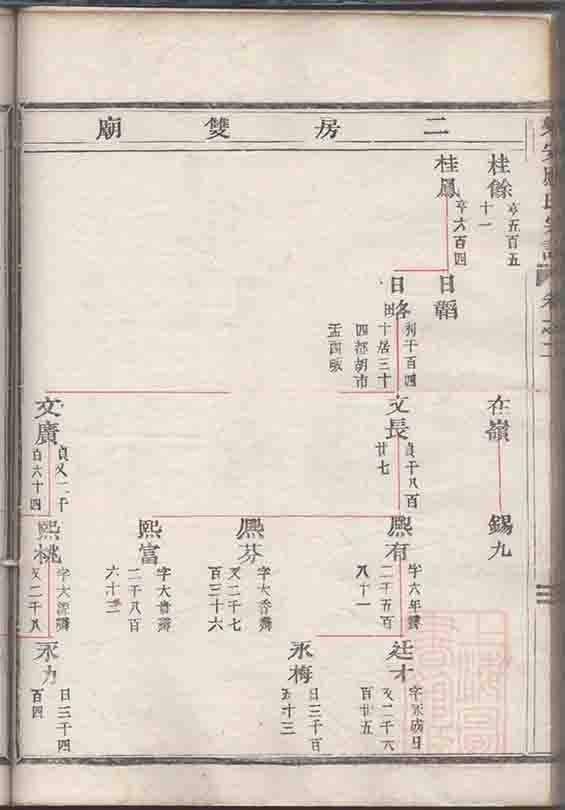 二房雙廟
桂餘
亨五百五
十一
桂鳳
亨六百四
日韜
日略
利千百四
十居三十
四都胡市
在嶺
錫九
文長
貞千八百
廿七
文廣
貞又二千
百六十四
熙有
字六年壽
二千五百
八十一
熙芬
字大香壽
又二千七
百三十六
熙富
字大音壽
二千八百
六十三
熙桃
又二千八
廷才
又二千六
百廿五
永梅
日三千百
五十三
永力
日三千四
百四